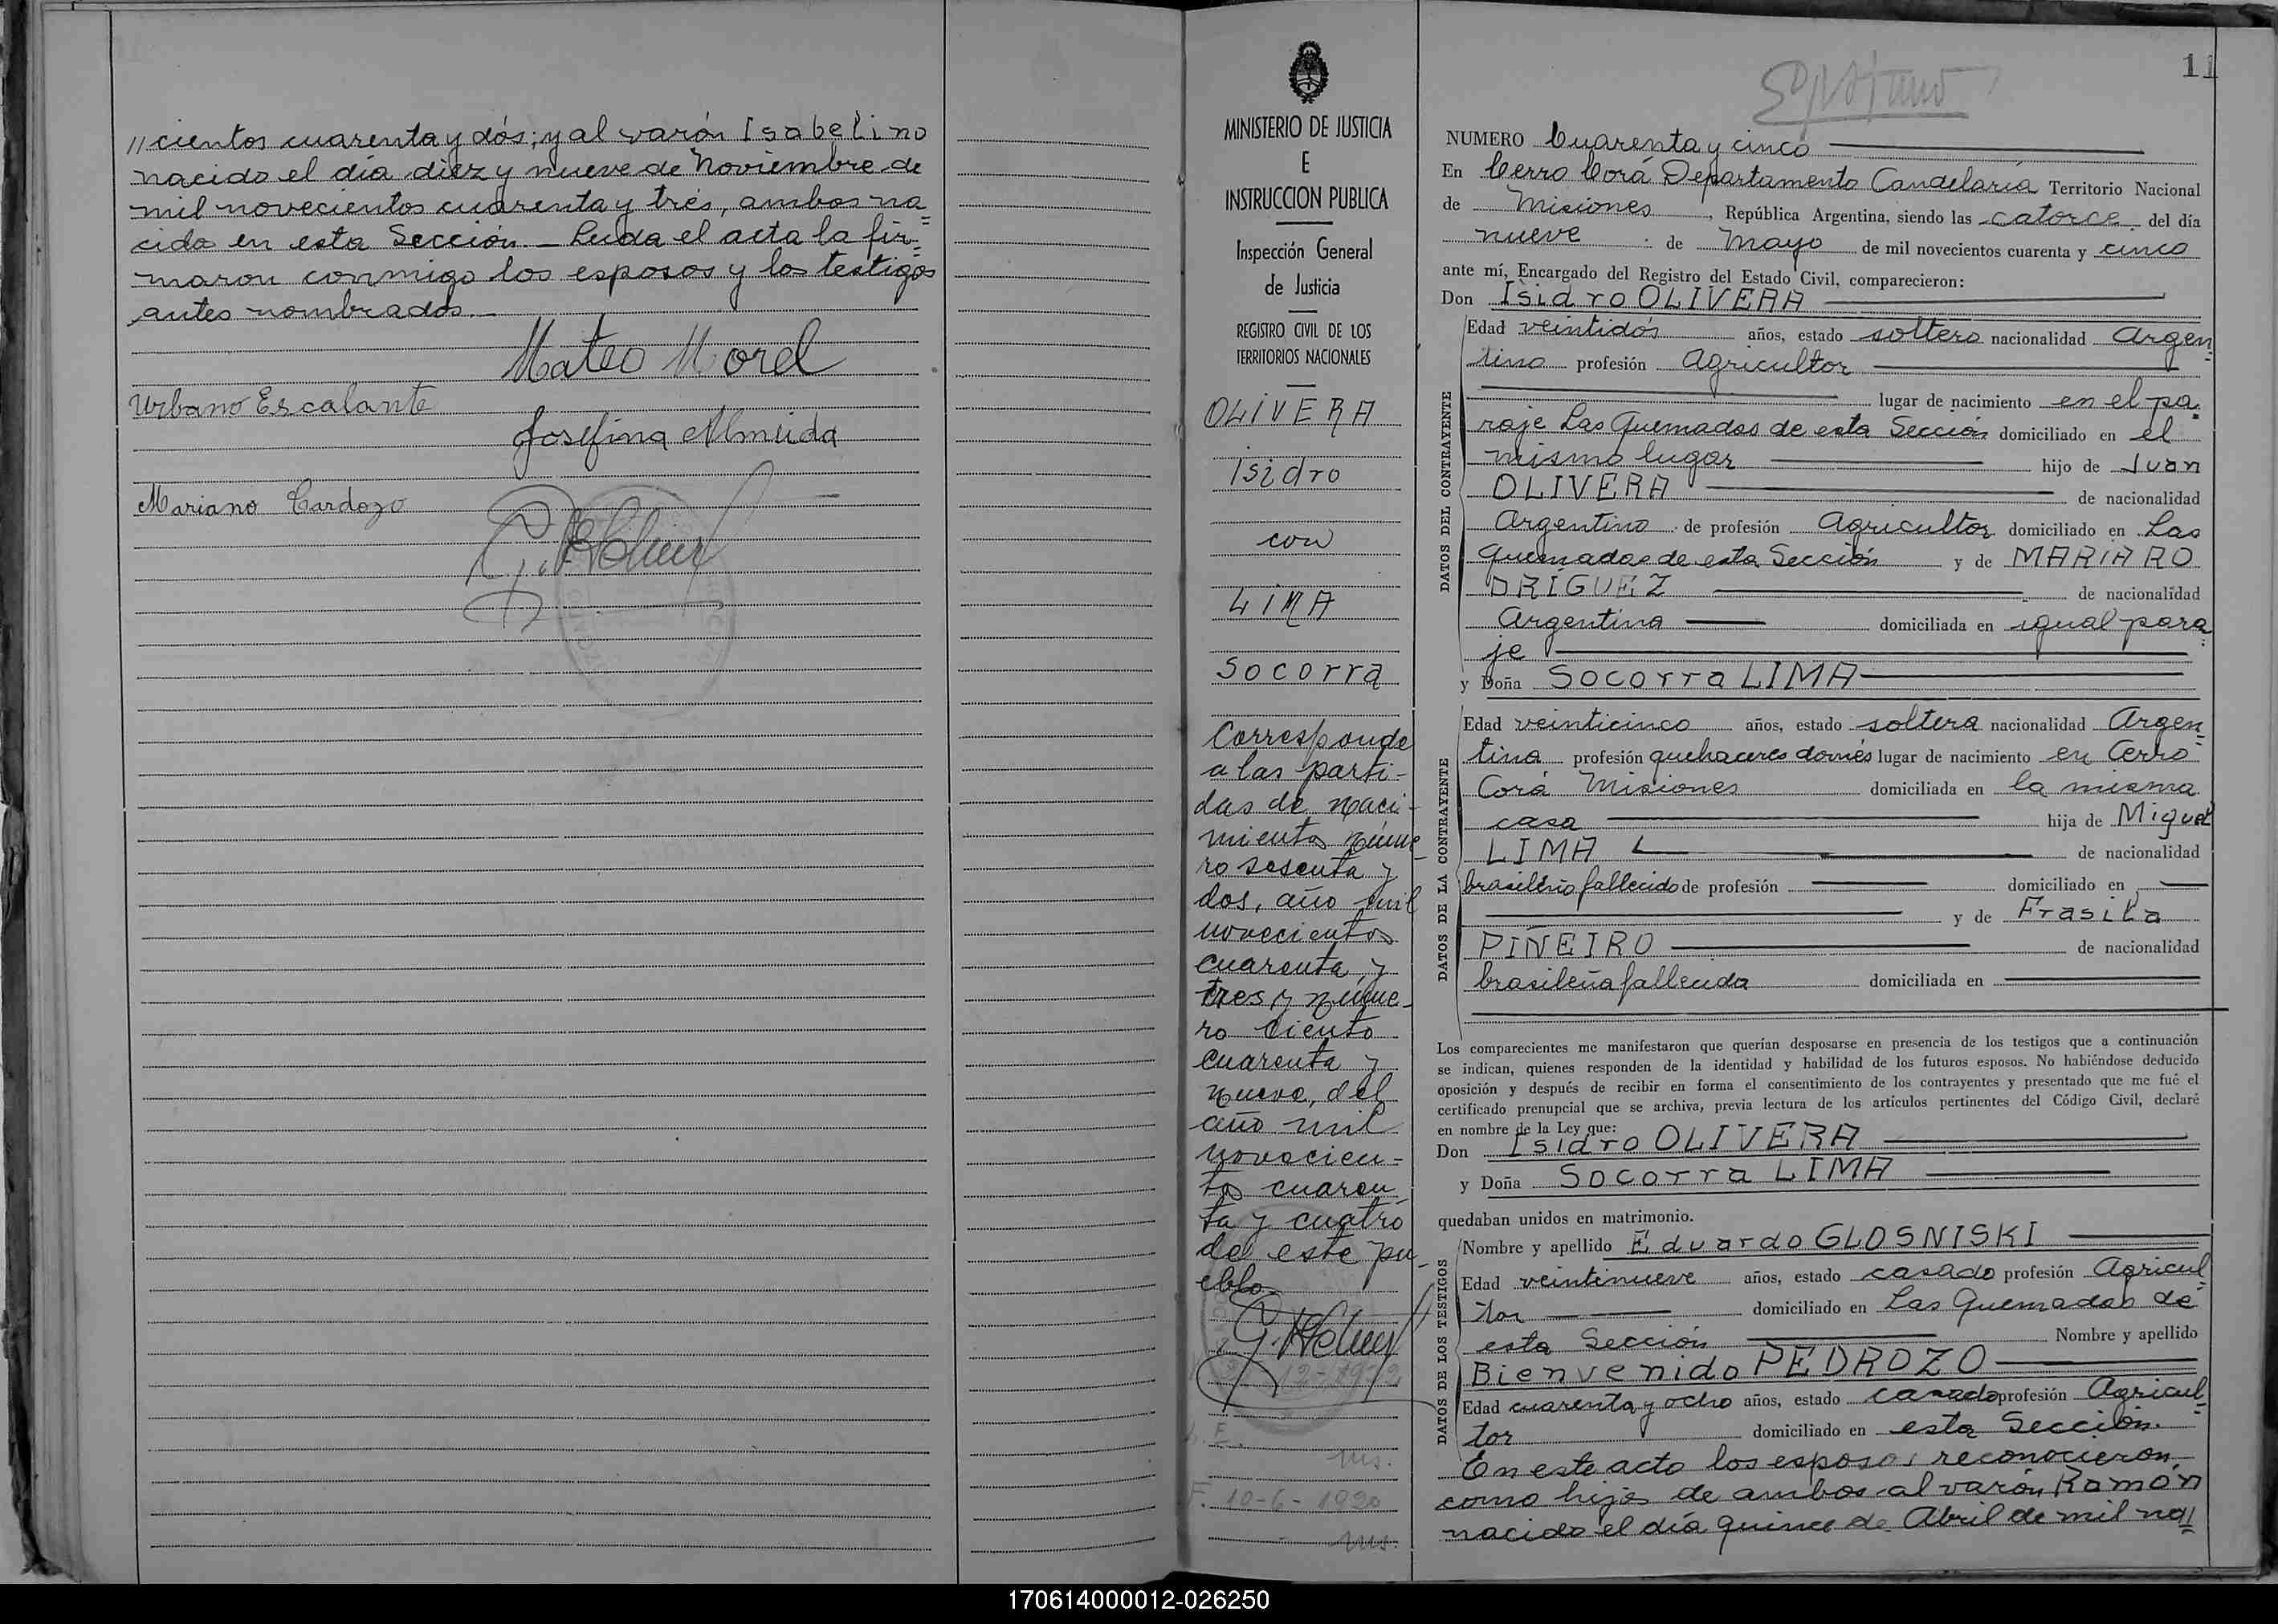 // cientos cuarenta y dós; y al varón Isabelino
nacido el día diez y nueve de Noviembre de
mil novecientos cuarenta y trés, ambos na=
cido en esta Sección.— Leida el acta la fir=
maron conmigo los esposos y los testigos
antes nombrados.—
Mateo Morel
Urbano Escalante
Josefina Almeida
Mariano Cardozo
MINISTERIO DE JUSTICIA
E
INSTRUCCION PUBLICA
Inspección General
de Justicia
REGISTRO CIVIL DE LOS
TERRITORIOS NACIONALES
OLIVERA
Isidro
con
LIMA
Socorra
Corresponde
a las parti-
das de naci-
miento núme-
ro sesenta y
dos, año mil
novecientos
cuarenta y
tres y núme-
ro ciento
cuarenta y
nueve, del
año mil
novecien-
tos cuaren
ta y cuatro
de este pu-
eblo.
F. 10-6-1920
11
NUMERO Cuarenta y cinco
En Cerro Corá Departamento Candelaria Territorio Nacional
de Misiones, República Argentina, siendo las catorce del día
nueve de Mayo de mil novecientos cuarenta y cinco
ante mí, Encargado del Registro del Estado Civil, comparecieron:
Don Isidro OLIVERA
DATOS DEL CONTRAYENTE
Edad veintidós años, estado soltero nacionalidad Argen=
tino profesión Agricultor
lugar de nacimiento en el pa=
raje Las Quemadas de esta Sección domiciliado en el
mismo lugar hijo de Juan
OLIVERA de nacionalidad
Argentino de profesión Agricultor domiciliado en Las
Quemadas de esta Sección y de MARIA RO
DRIGUEZ de nacionalidad
Argentina domiciliada en igual para=
je
y Doña Socorra LIMA
DATOS DE LA CONTRAYENTE
Edad veinticinco años, estado soltera nacionalidad Argen=
tina profesión quehaceres domés lugar de nacimiento en Cerro
Corá Misiones domiciliada en la misma
casa hija de Miguel
LIMA de nacionalidad
brasileño fallecido de profesión domiciliado en
y de Frasila
PIÑEIRO de nacionalidad
brasileña fallecida domiciliada en
Los comparecientes me manifestaron que querían desposarse en presencia de los testigos que a continuación
se indican, quienes responden de la identidad y habilidad de los futuros esposos. No habiéndose deducido
oposición y después de recibir en forma el consentimiento de los contrayentes y presentado que me fué el
certificado prenupcial que se archiva, previa lectura de los artículos pertinentes del Código Civil, declaré
en nombre de la Ley que:
Don Isidro OLIVERA
y Doña Socorra LIMA
quedaban unidos en matrimonio.
DATOS DE LOS TESTIGOS
Nombre y apellido Eduardo GLOSNISKI
Edad veintinueve años, estado casado profesión Agricul=
tor domiciliado en Las Quemadas de
esta Sección Nombre y apellido
Bienvenido PEDROZO
Edad cuarenta y ocho años, estado casado profesión Agricul=
tor domiciliado en esta Sección.
En este acto los esposos reconocieron
como hijos de ambos al varón Ramón
nacido el día quince de Abril de mil no//
170614000012-026250